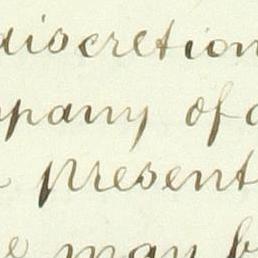 discretion
mpany of a
present
may b